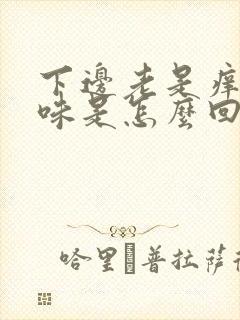 下邊老是痒
味是怎麼回
哈里 普拉萨